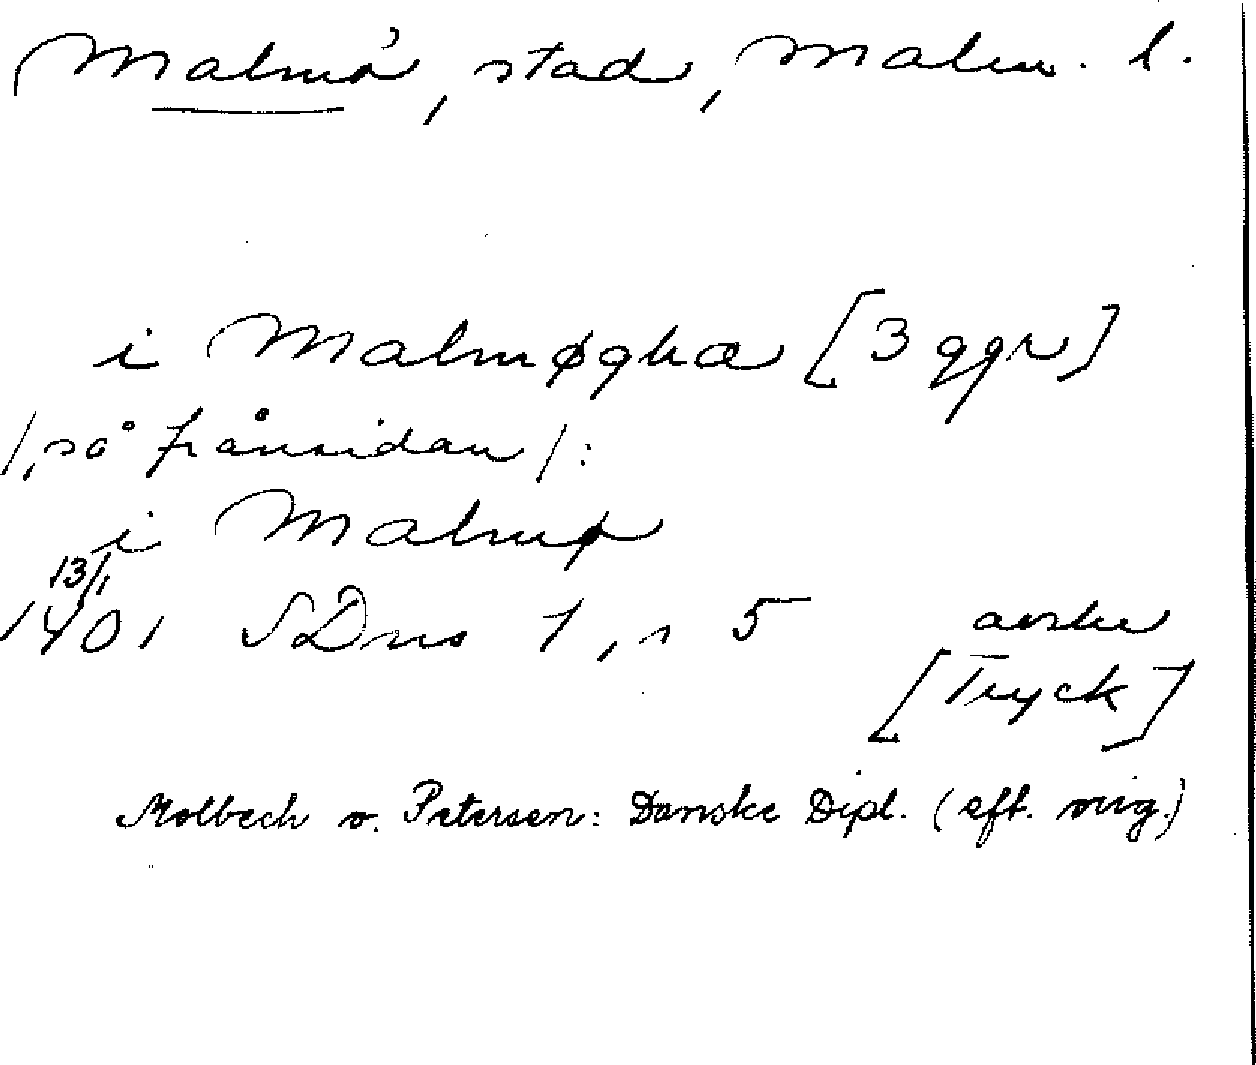 Malmö, stad, Malm. l.
i Malmøghæ [3 ggr]
/, så frånsidan /:
i Malmø
13/1
1401 SDns 1, s 5 avskr
[Tryck]
Molbech o. Petersen: Danske Dipl. (eft. orig.)